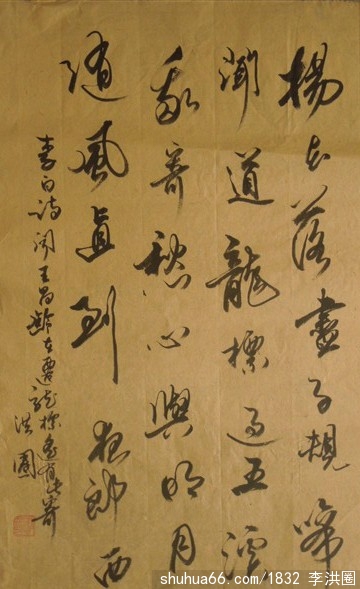 楊花落盡子規啼
聞道龍標過五溪
我寄愁心與明月
隨風直到夜郎西
李白詩聞王昌齡左遷龍標遙有此寄
洪圈
shuhua66.com/1832 李洪圈